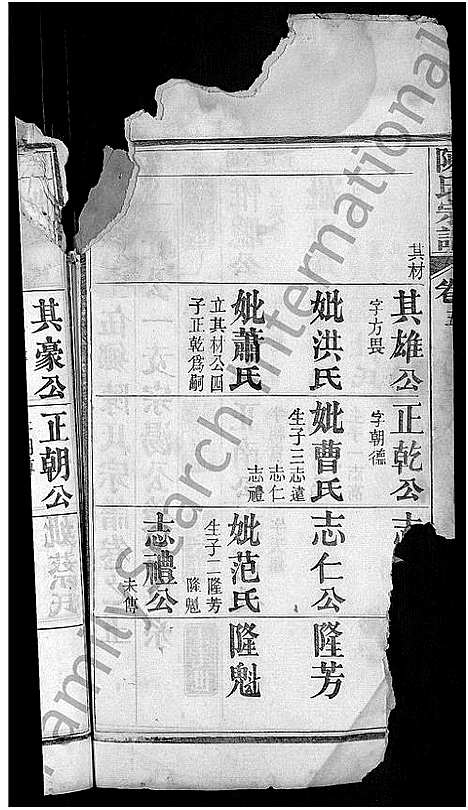 陳氏宗譜
卷五
其材
其雄公
字方畏
正乾公
字朝德
志
妣洪氏
妣曹氏
生子三志遠
志仁
志禮
志仁公
隆芳
妣蕭氏
立其材公四
子正乾爲嗣
妣范氏
生子二隆芳
隆魁
隆魁
志禮公
未傳
其豪公
正朝公
妣蔡氏
FamilySearch International